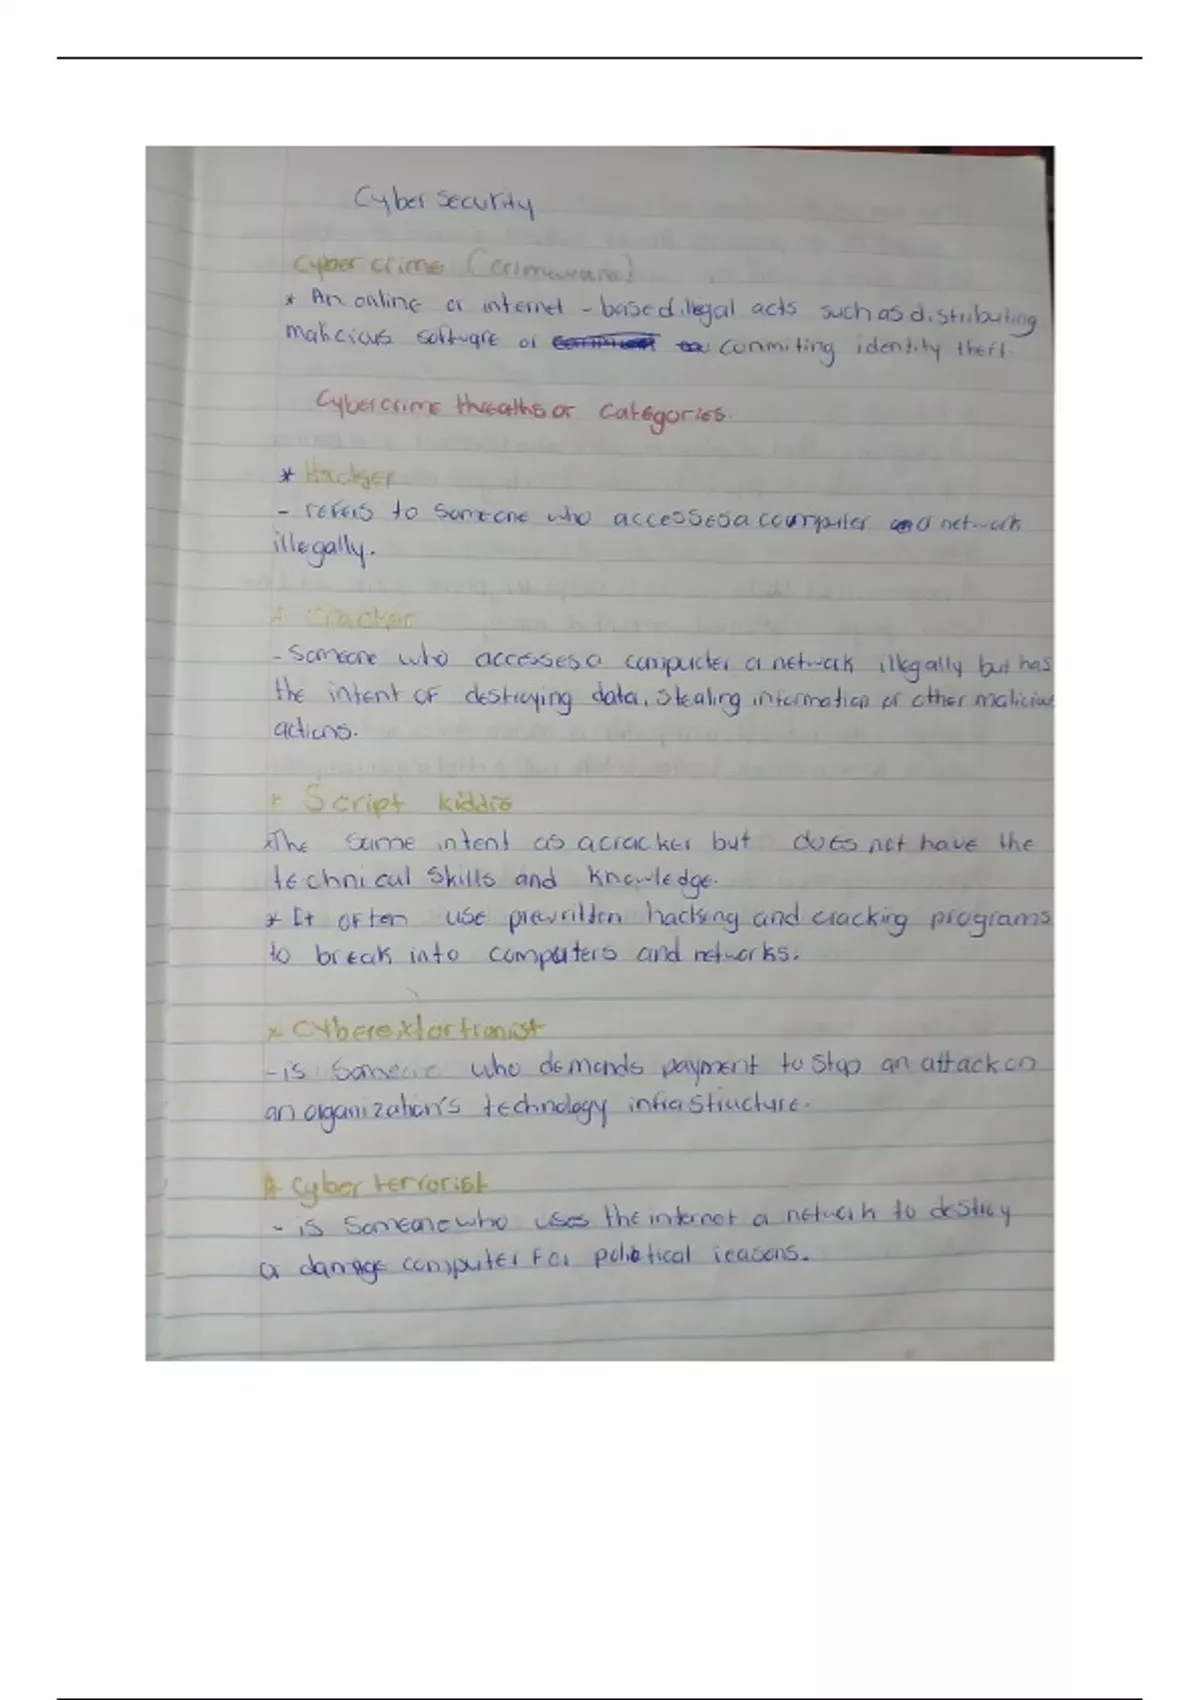 Cyber security
Cyber crime (crimeware)
* An online or internet - based illegal acts such as distributing
malicious software or committing identity theft.
Cybercrime threaths or categories.
* Hacker
- refers to someone who accesses a computer or network
illegally.
* Cracker
- Someone who accesses a computer or network illegally but has
the intent of destroying data, stealing information or other malicious
actions.
* Script kiddie
* The same intent as a cracker but does not have the
technical skills and knowledge.
* It often use prewritten hacking and cracking programs
to break into computers and networks.
* Cyberextortionist
- is someone who demands payment to stop an attack on
an organization's technology infrastructure.
* Cyber terrorist
- is someone who uses the internet or network to destroy
or damage computer for political reasons.